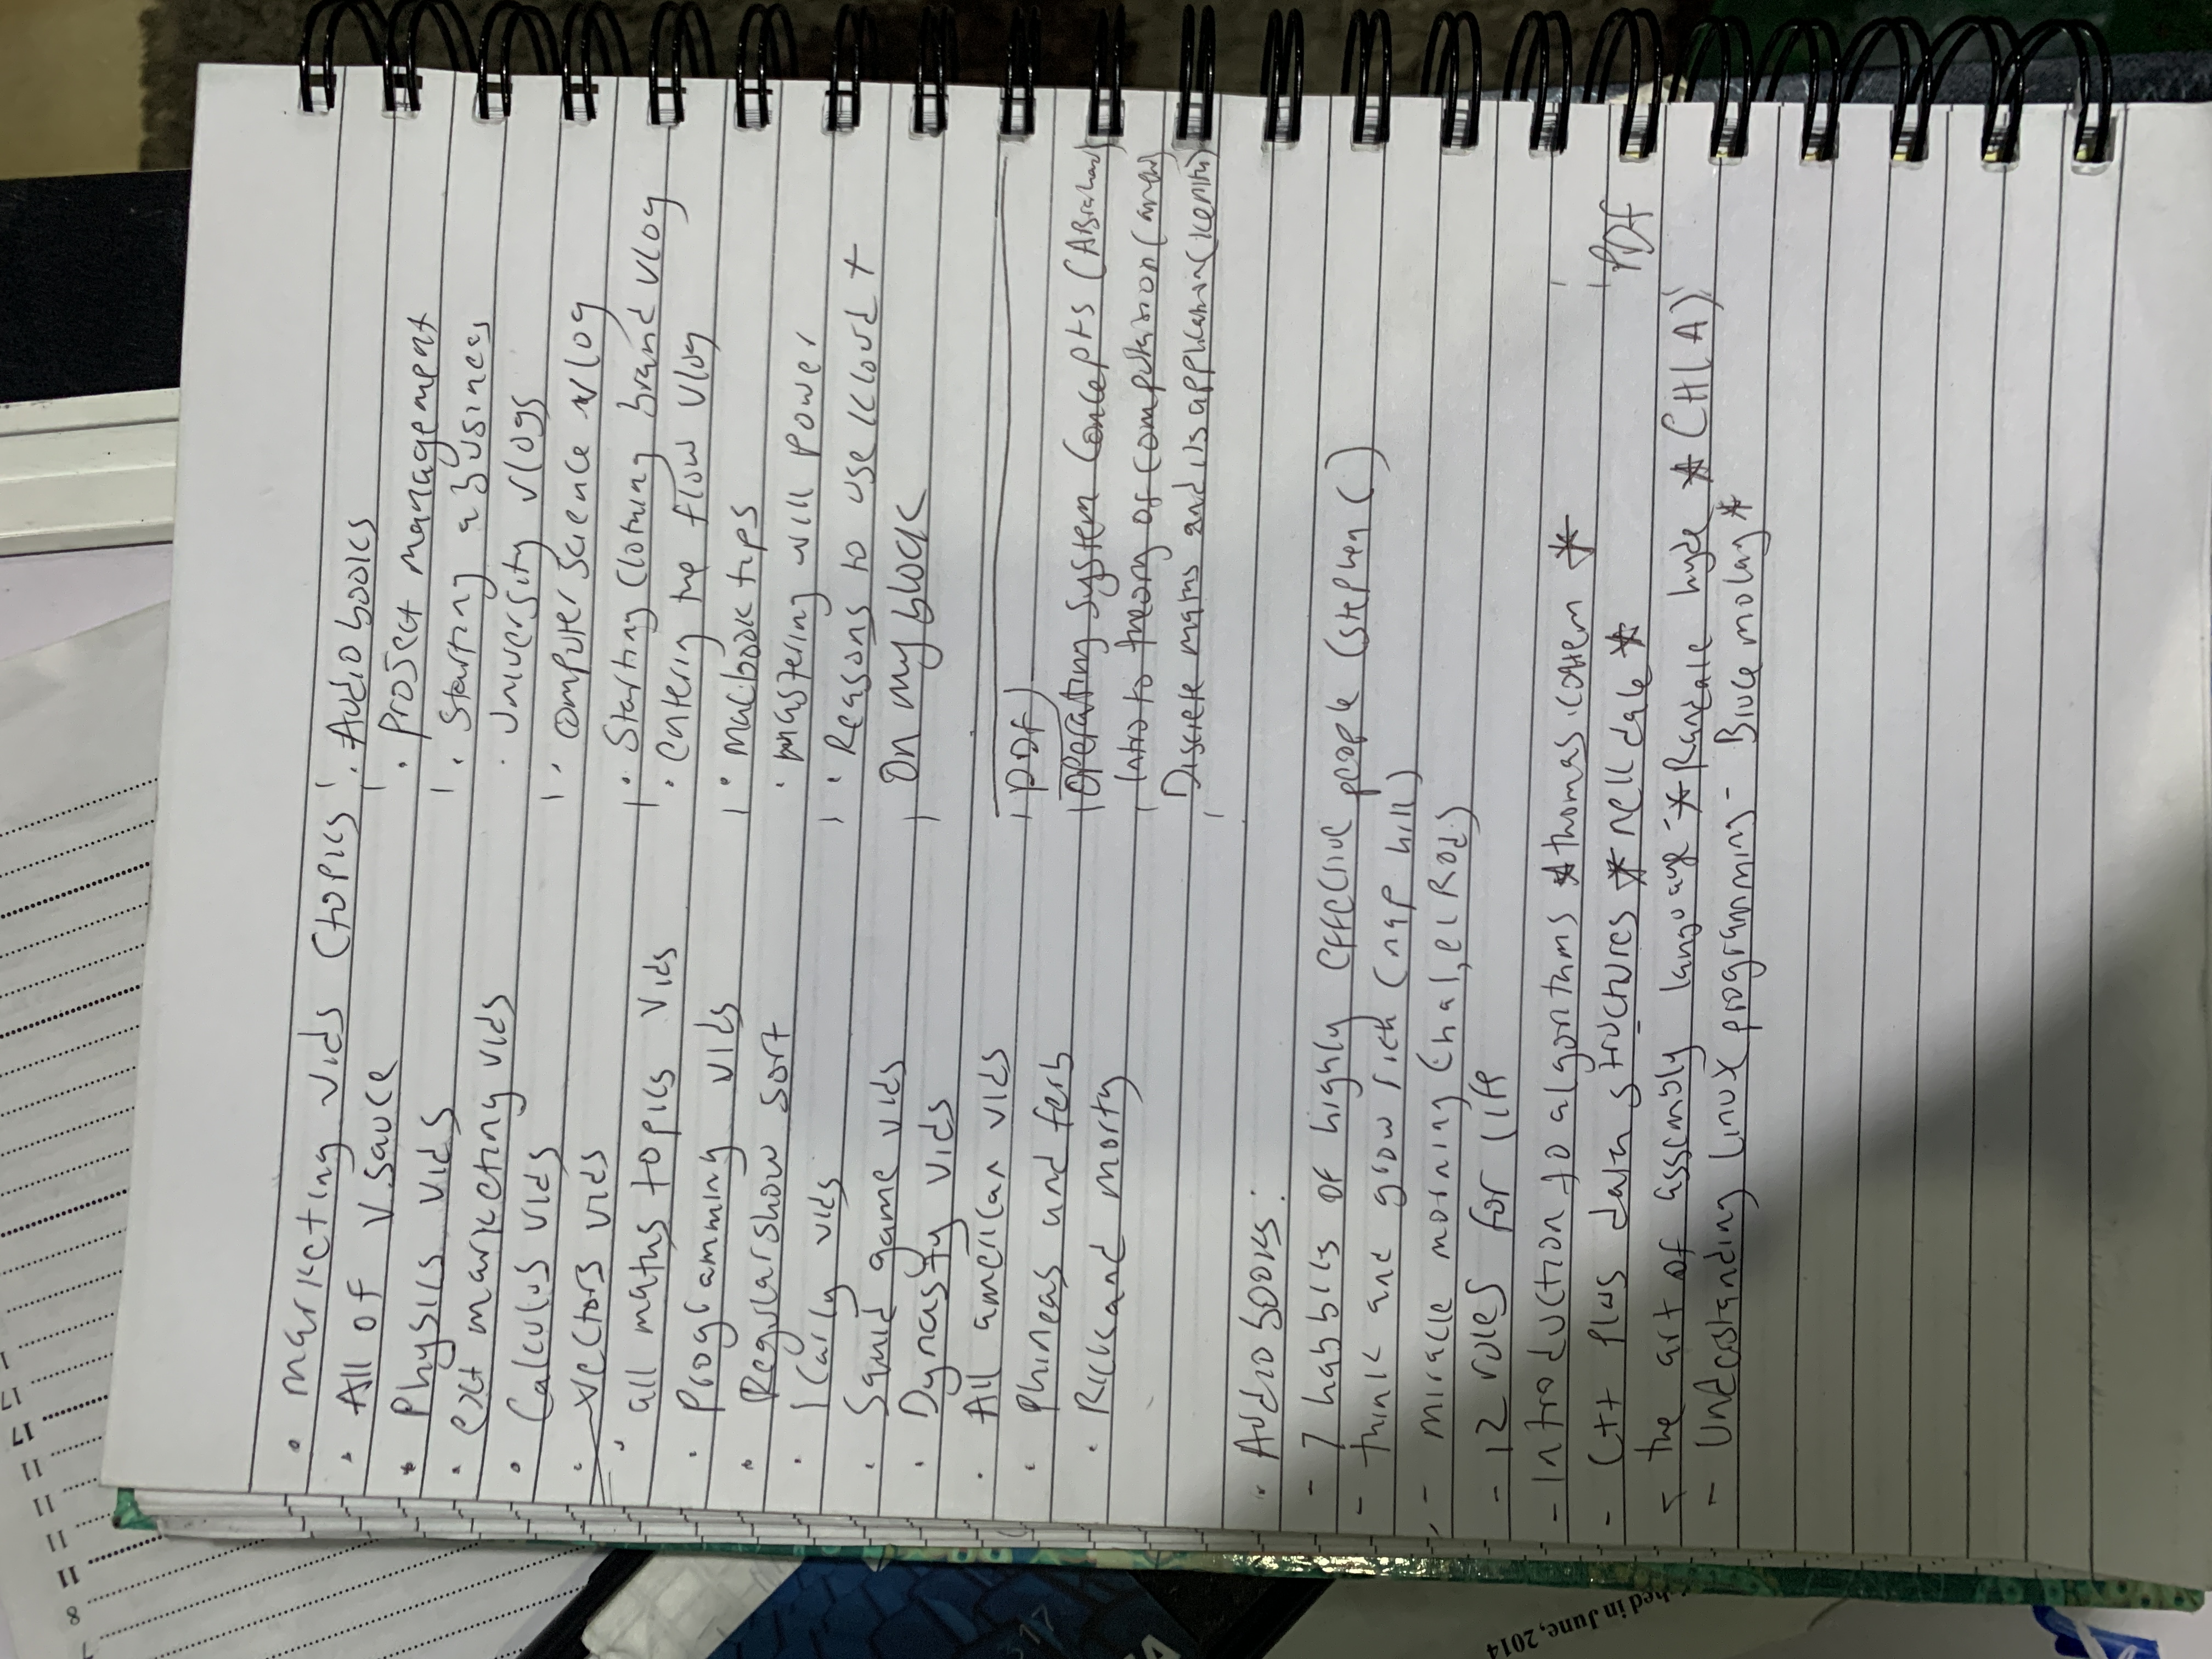 7
8
11
11
11
11
17
17
• marketing vids (topics
• All of Vsauce
• Physics vids
• ext marketing vids
• Calculus vids
• vectors vids
• all maths topics vids
• programming vids
• Regularshow sort
• ICarly vids
• Squid game vids
• Dynasty vids
• All american vids
• Phineas and ferb
• Rick and morty
• Audio books
• project management
• Starting a business
• University vlogs
• computer science vlog
• Starting Clothing brand vlog
• entering the flow vlog
• macbook tips
• mastering will power
• Reasons to use icloud +
On my block
PDF)
Operating System Concepts (Abraham)
Intro to theory of computation (
Discrete maths and its application (
• Audio books:
- 7 habbits of highly effective people (stephen C)
- think and grow rich (nap hill)
- miracle morning (hal, el Rod)
- 12 rules for life
- Introduction to algorithms * thomas. *
- C++ plus data structures * nell dale *
PDF
- the art of assembly language - * Randale hyde * (HLA)
- Understanding linux programming - Bruce molay *
hed in June, 2014